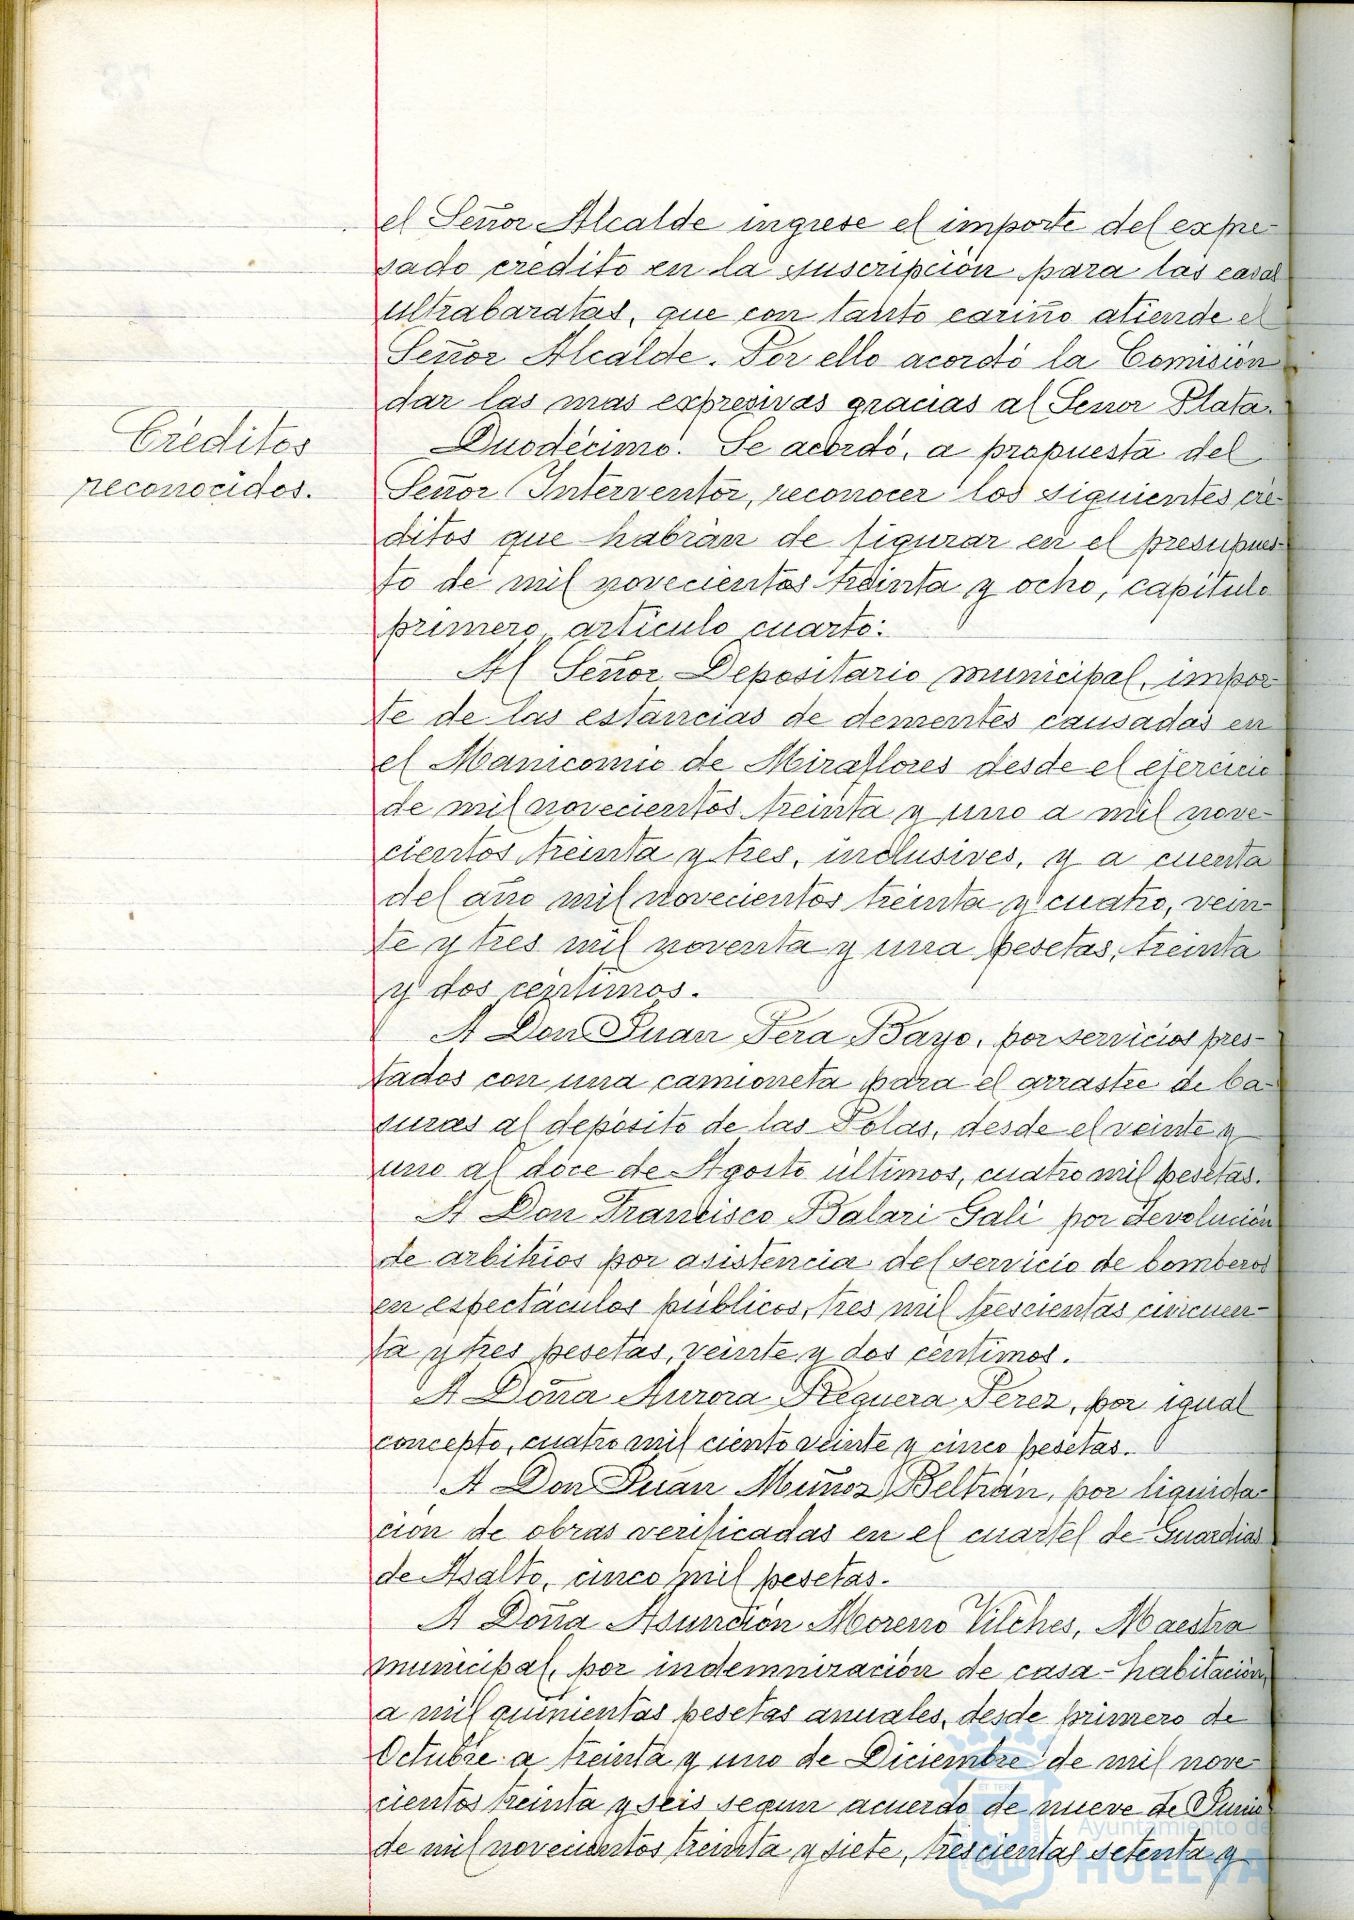 el Señor Alcalde ingrese el importe del expre-
sado crédito en la suscripción para las casas
ultrabaratas, que con tanto cariño atiende el
Señor Alcalde. Por ello acordó la Comisión
dar las mas expresivas gracias al Señor Plata.
Créditos
reconocidos.
Duodécimo. Se acordó, a propuesta del
Señor Interventor, reconocer los siguientes cré-
ditos que habrán de figurar en el presupues-
to de mil novecientos treinta y ocho, capítulo
primero, artículo cuarto:
Al Señor Depositario municipal, impor-
te de las estancias de dementes causadas en
el Manicomio de Miraflores desde el ejercicio
de mil novecientos treinta y uno a mil nove-
cientos treinta y tres, inclusives, y a cuenta
del año mil novecientos treinta y cuatro, vein-
te y tres mil noventa y una pesetas, treinta
y dos céntimos.
A Don Juan Pera Bayo, por servicios pres-
tados con una camioneta para el arrastre de ba-
suras al depósito de las Polas, desde el veinte y
uno al doce de Agosto últimos, cuatro mil pesetas.
A Don Francisco Balari Gali por devolución
de arbitrios por asistencia del servicio de bomberos
en espectáculos públicos, tres mil trescientas cincuen-
ta y tres pesetas, veinte y dos céntimos.
A Doña Aurora Reguera Perez, por igual
concepto, cuatro mil ciento veinte y cinco pesetas.
A Don Juan Muñoz Beltrán, por liquida-
ción de obras verificadas en el cuartel de Guardias
de Asalto, cinco mil pesetas.
A Doña Asunción Moreno Vilches, Maestra
municipal, por indemnización de casa-habitación,
a mil quinientas pesetas anuales, desde primero de
Octubre a treinta y uno de Diciembre de mil nove-
cientos treinta y seis segun acuerdo de nueve de Junio
de mil novecientos treinta y siete, trescientas setenta y
Ayuntamiento de
HUELVA